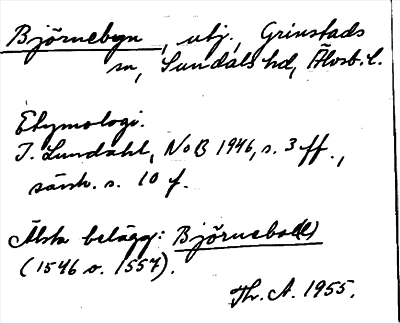 Björnebyn, utj., Grinstads
sn, Sundals hd, Älvsb. l.
Etymologi.
I. Lundahl, NoB 1946, s. 3 ff.,
särsk. s. 10 f.
Älsta belägg: Björnebo(l)
(1546 o. 1557).
Th. A. 1955.